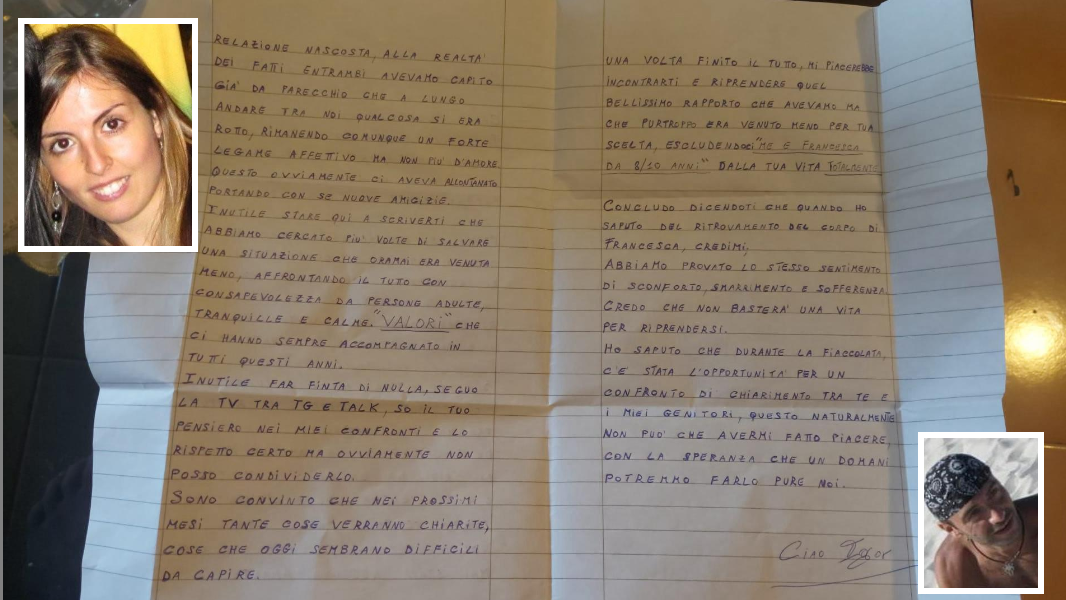 RELAZIONE NASCOSTA, ALLA REALTA'
DEI FATTI ENTRAMBI AVEVAMO CAPITO
GIA' DA PARECCHIO CHE A LUNGO
ANDARE TRA NOI QUALCOSA SI ERA
ROTTO, RIMANENDO COMUNQUE UN FORTE
LEGAME AFFETTIVO MA NON PIU' D'AMORE
QUESTO OVVIAMENTE CI AVEVA ALLONTANATO
PORTANDO CON SE NUOVE AMICIZIE.
INUTILE STARE QUI A SCRIVERTI CHE
ABBIAMO CERCATO PIU' VOLTE DI SALVARE
UNA SITUAZIONE CHE ORAMAI ERA VENUTA
MENO, AFFRONTANDO IL TUTTO CON
CONSAPEVOLEZZA DA PERSONE ADULTE,
TRANQUILLE E CALME. "VALORI" CHE
CI HANNO SEMPRE ACCOMPAGNATO IN
TUTTI QUESTI ANNI.
INUTILE FAR FINTA DI NULLA, SEGUO
LA TV TRA TG E TALK, SO IL TUO
PENSIERO NEI MIEI CONFRONTI E LO
RISPETTO CERTO MA OVVIAMENTE NON
POSSO CONDIVIDERLO.
SONO CONVINTO CHE NEI PROSSIMI
MESI TANTE COSE VERRANNO CHIARITE,
COSE CHE OGGI SEMBRANO DIFFICILI
DA CAPIRE.
UNA VOLTA FINITO IL TUTTO, MI PIACEREBBE
INCONTRARTI E RIPRENDERE QUEL
BELLISSIMO RAPPORTO CHE AVEVAMO MA
CHE PURTROPPO ERA VENUTO MENO PER TUA
SCELTA, ESCLUDENDOCI "ME E FRANCESCA
DA 8/10 ANNI" DALLA TUA VITA TOTALMENTE
CONCLUDO DICENDOTI CHE QUANDO HO
SAPUTO DEL RITROVAMENTO DEL CORPO DI
FRANCESCA, CREDIMI,
ABBIAMO PROVATO LO STESSO SENTIMENTO
DI SCONFORTO, SMARRIMENTO E SOFFERENZA.
CREDO CHE NON BASTERA' UNA VITA
PER RIPRENDERSI.
HO SAPUTO CHE DURANTE LA FIACCOLATA,
C'E' STATA L'OPPORTUNITA' PER UN
CONFRONTO DI CHIARIMENTO TRA TE E
I MIEI GENITORI, QUESTO NATURALMENTE
NON PUO' CHE AVERMI FATTO PIACERE,
CON LA SPERANZA CHE UN DOMANI
POTREMMO FARLO PURE NOI.
Ciao Igor